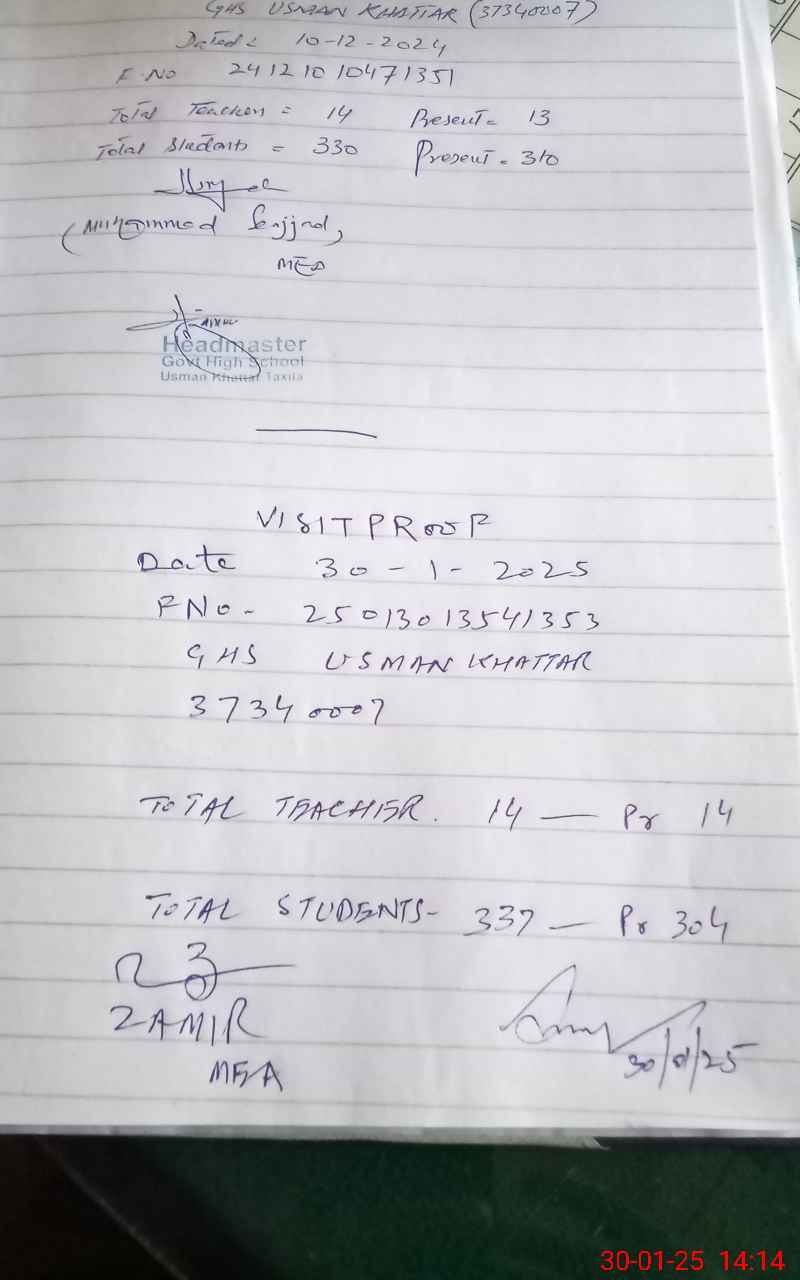 GHS USMAN KHATTAR (37340007)
Dated: 10-12-2024
F.NO 24121010471351
Total Teachers = 14 Present = 13
Total Students = 330 Present = 310
(Muhammad Sajjad)
MEA
Headmaster
Govt High School
Usman Khattar Taxila
VISIT PROOF
Date 30-1-2025
FNo- 25013013541353
GHS USMAN KHATTAR
37340007
TOTAL TEACHER. 14 — Pr 14
TOTAL STUDENTS- 337 — Pr 304
ZAMIR
MEA
30/01/25
30-01-25 14:14